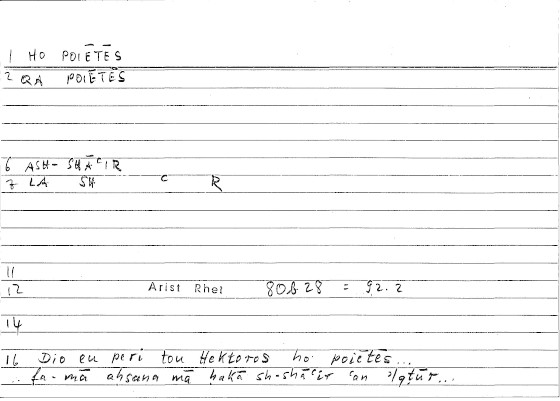 1 HO POIĒTĒS
2 QA POIĒTĒS
6 ASH-SHĀʿIR
7 LA SH ʿ R
11
12 Arist Rhet 80b28 = 92.2
14
16 Dio eu peri tou Hektoros ho poiētēs...
.. fa-mā aḥsana mā ḥakā sh-shāʿir ʿan